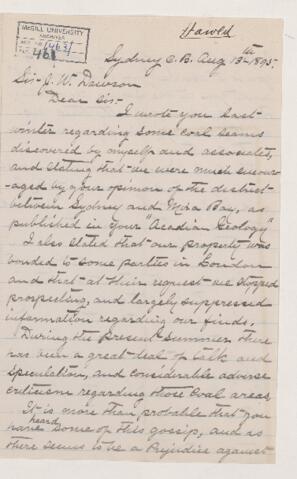 McGILL UNIVERSITY
ARCHIVES
ACC. NO. 1463
REF. 46
Sydney C.B. Aug 13th 1895.
Sir J. W. Dawson
Dear Sir:-
I wrote you last
winter regarding some coal seams
discovered by myself and associates,
and stating that we were much encour-
-aged by your opinion of the district
between Sydney and Mira Bay, as
published in your "Acadian Geology"
I also stated that our property was
bonded to some parties in London
and that at their request we stopped
prospecting, and largely suppressed
information regarding our finds,
During the present Summer there
has been a great deal of talk and
speculation, and considerable adverse
criticism regarding those Coal areas,
It is more than probable that you
have heard some of this gossip, and as
there seems to be a Prejudice against